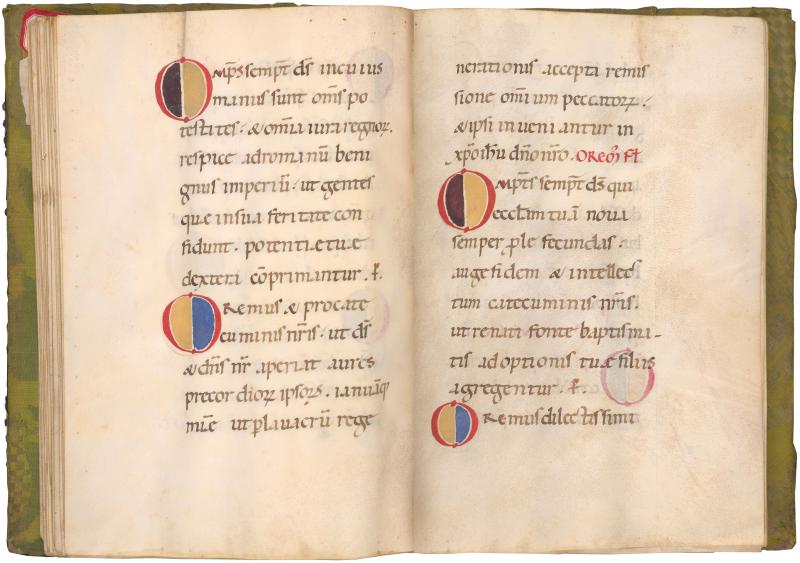 Omp̄s sempr̄ d̄s in cuius
manus sunt om̄s po
testates · & om̄ia iura regnoꝝ.
respice ad romanū beni
gnus imperiū · ut gentes
quę in sua feritate con
fidunt · potentię tuę
dexterę cōprimantur · f̄.
Oremus & pro cate
cuminis nr̄is · ut d̄s
& dn̄s nr̄ aperiat aures
precordioꝝ ipsoꝝ · ianuāq̄
mīę ut ꝑ lauacrū rege
nerationis accepta remis
sione om̄ium peccatoꝝ ·
& ipsi inueniantur in
xp̄o ihū dn̄o nr̄o · OREM̄ Fł
Omp̄ts sempr̄ d̄s qui
ecclam tuā noua
semper ꝓle fecundas ·
auge fidem & intellec
tum catecuminis nr̄is ·
ut renati fonte baptisma-
tis adoptionis tuę filiis
agregentur · f̄.
Oremus dilectissimi